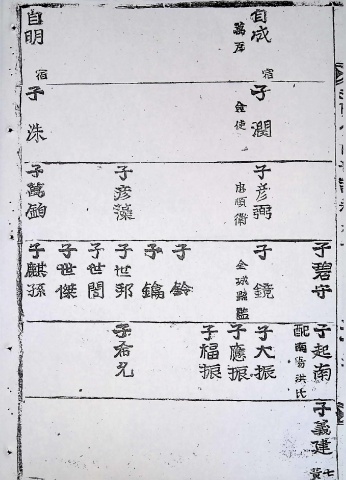 自成
萬戶
宿
自明
宿
子 潤
僉使
子 洙
子彦弼
忠順衛
子彦藻
子萬鉑
子碧守
子 鏡
仝城縣監
子 鈴
子 鎬
子世邦
子世誾
子世傑
子麒孫
子起南
配南陽洪氏
子大振
子應振
子福振
子希尹
子義建
七
黃